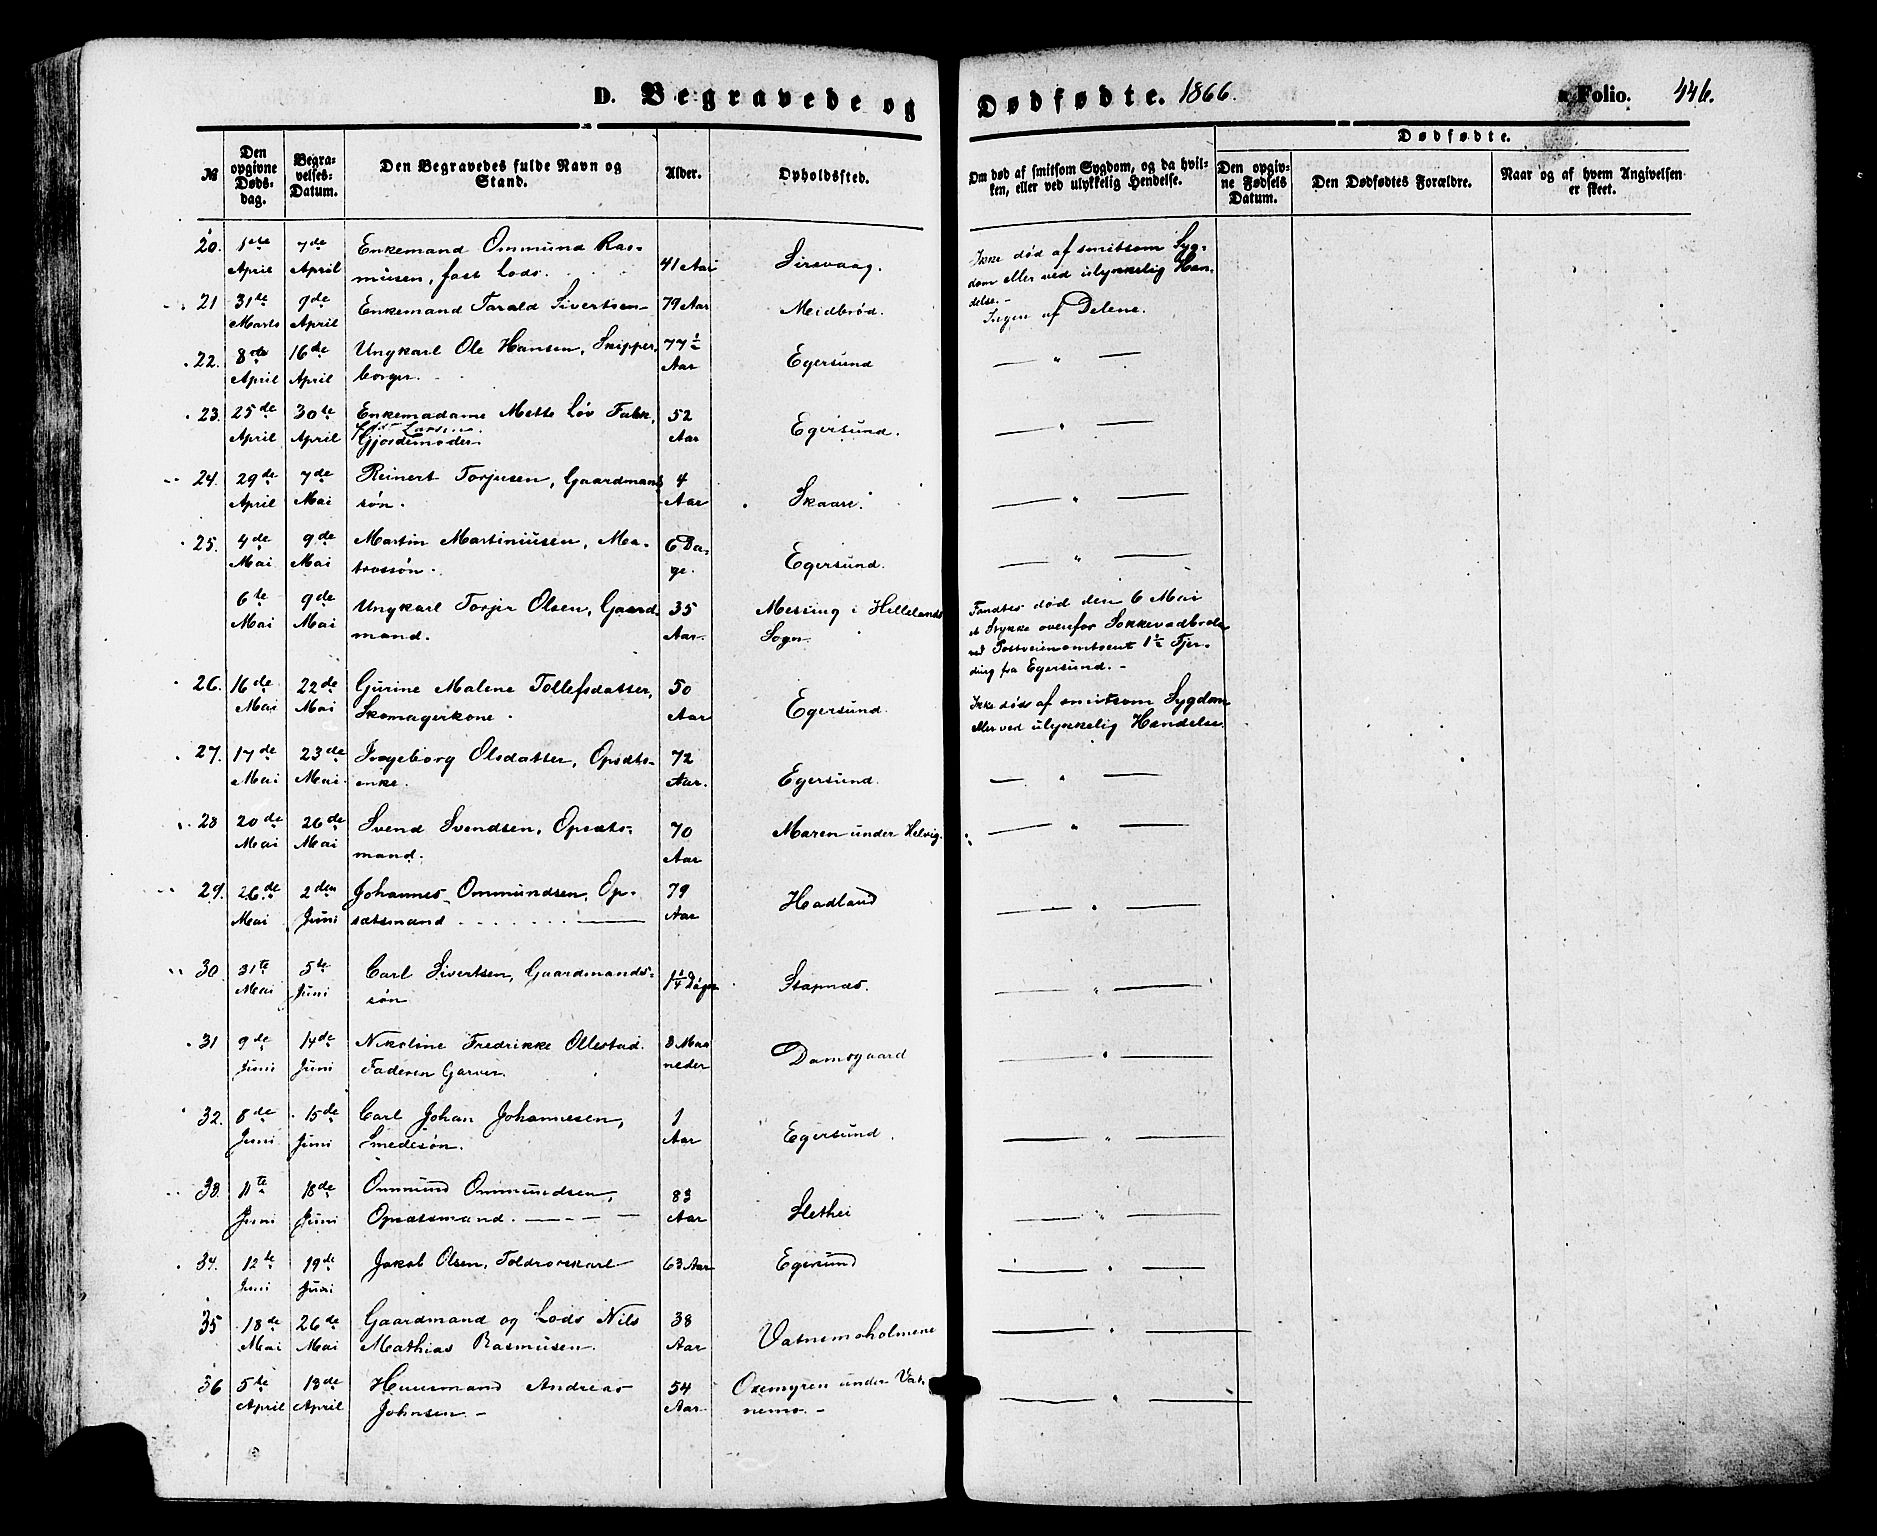 D. Begravede og Dødfødte. 1866. Folio. 446.
№
Den opgivne Døds-dag.
Begra-velses-Datum.
Den Begravedes fulde Navn og Stand.
Alder.
Opholdssted.
Om død af smitsom Sygdom, og da hvil-ken, eller ved ulykkelig Hendelse.
Dødfødte.
Den opgiv-ne Fødsels Datum.
Den Dødfødtes Forældre.
Naar og af hvem Angivelsen er skeet.
20. 1ste 7de Enkemand Ommund Ras- 41 Aar Sirevaag. Ikke død af smitsom Syg-
April April musen, fast Lods. dom eller ved ulykkelig Hæn-
delse.-
21 31de 9de Enkemand Tarald Sivertsen 79 Aar Meidbrød. Ingen af Delene.
Marts April
22. 8de 16de Ungkarl Ole Hansen, Skipper, 77½ Egersund — " —
April April borger. Aar
23. 25de 30te Enkemadame Mette Løv Falk, 52 Egersund. — " —
April April Larsen Aar
Gjordemoder
24. 29de 7de Reinert Torjusen, Gaardmands 4 Skaare. — " —
April Mai søn. Aar
25. 4de 9de Martin Martiniusen, Ma- 6 Da- Egersund. — " —
Mai Mai trossøn. ge.
6te 9de Ungkarl Torjer Olsen, Gaard 35 Messing i Hellelands Fandtes død den 6 Mai
Mai Mai mand. Aar. Sogn. et Stykke ovenfor Sokkevadbroen
ved Postveien omtrent 1½ Fjer-
ding fra Egersund.-
26. 16de 22de Gurine Malene Tollefsdatter, 50 Egersund. Ikke død af smitsom Sygdom
Mai Mai Skomagerkone. Aar eller ved ulykkelig Hændelse.
27. 17de 23de Ingeborg Olsdatter, Opsæts- 72 Egersund. — " —
Mai Mai. enke. Aar.
28 20de 26de Svend Svendsen, Opsæts- 70 Maren under Helvig. — " —
Mai Mai mand. Aar
29. 26de 2den Johannes Ommundsen, Op- 79 Hadland — " —
Mai Juni sætsmand Aar
30. 31te 5te Carl Sivertsen, Gaardmands- 1¼ Døgn Stapnæs. — " —
Mai Juni søn
31 9de 14de Nikoline Fredrikke Ollestad. 8 Maa Damsgaard — " —
Juni Juni Faderen Garver. neder
32. 8de 15de Carl Johan Johannesen, 1 Egersund. — " —
Juni Juni Smedesøn. Aar
33. 11te 18de Ommund Ommundsen, 83 Slethei — " —
Juni Juni Opsætsmand. Aar
34. 12te 19de Jakob Olsen, Toldroerskarl 63 Aar Egersund — " —
Juni Juni
35 18de 26de Gaardmand og Lods Nils 38 Vatnemoholmene — " —
Mai Mai Mathias Rasmusen. Aar
36 5te 13de Huusmand Andreas 54 Oxemyren under Vat- — " —
April April Johnsen.- Aar. nemo.-